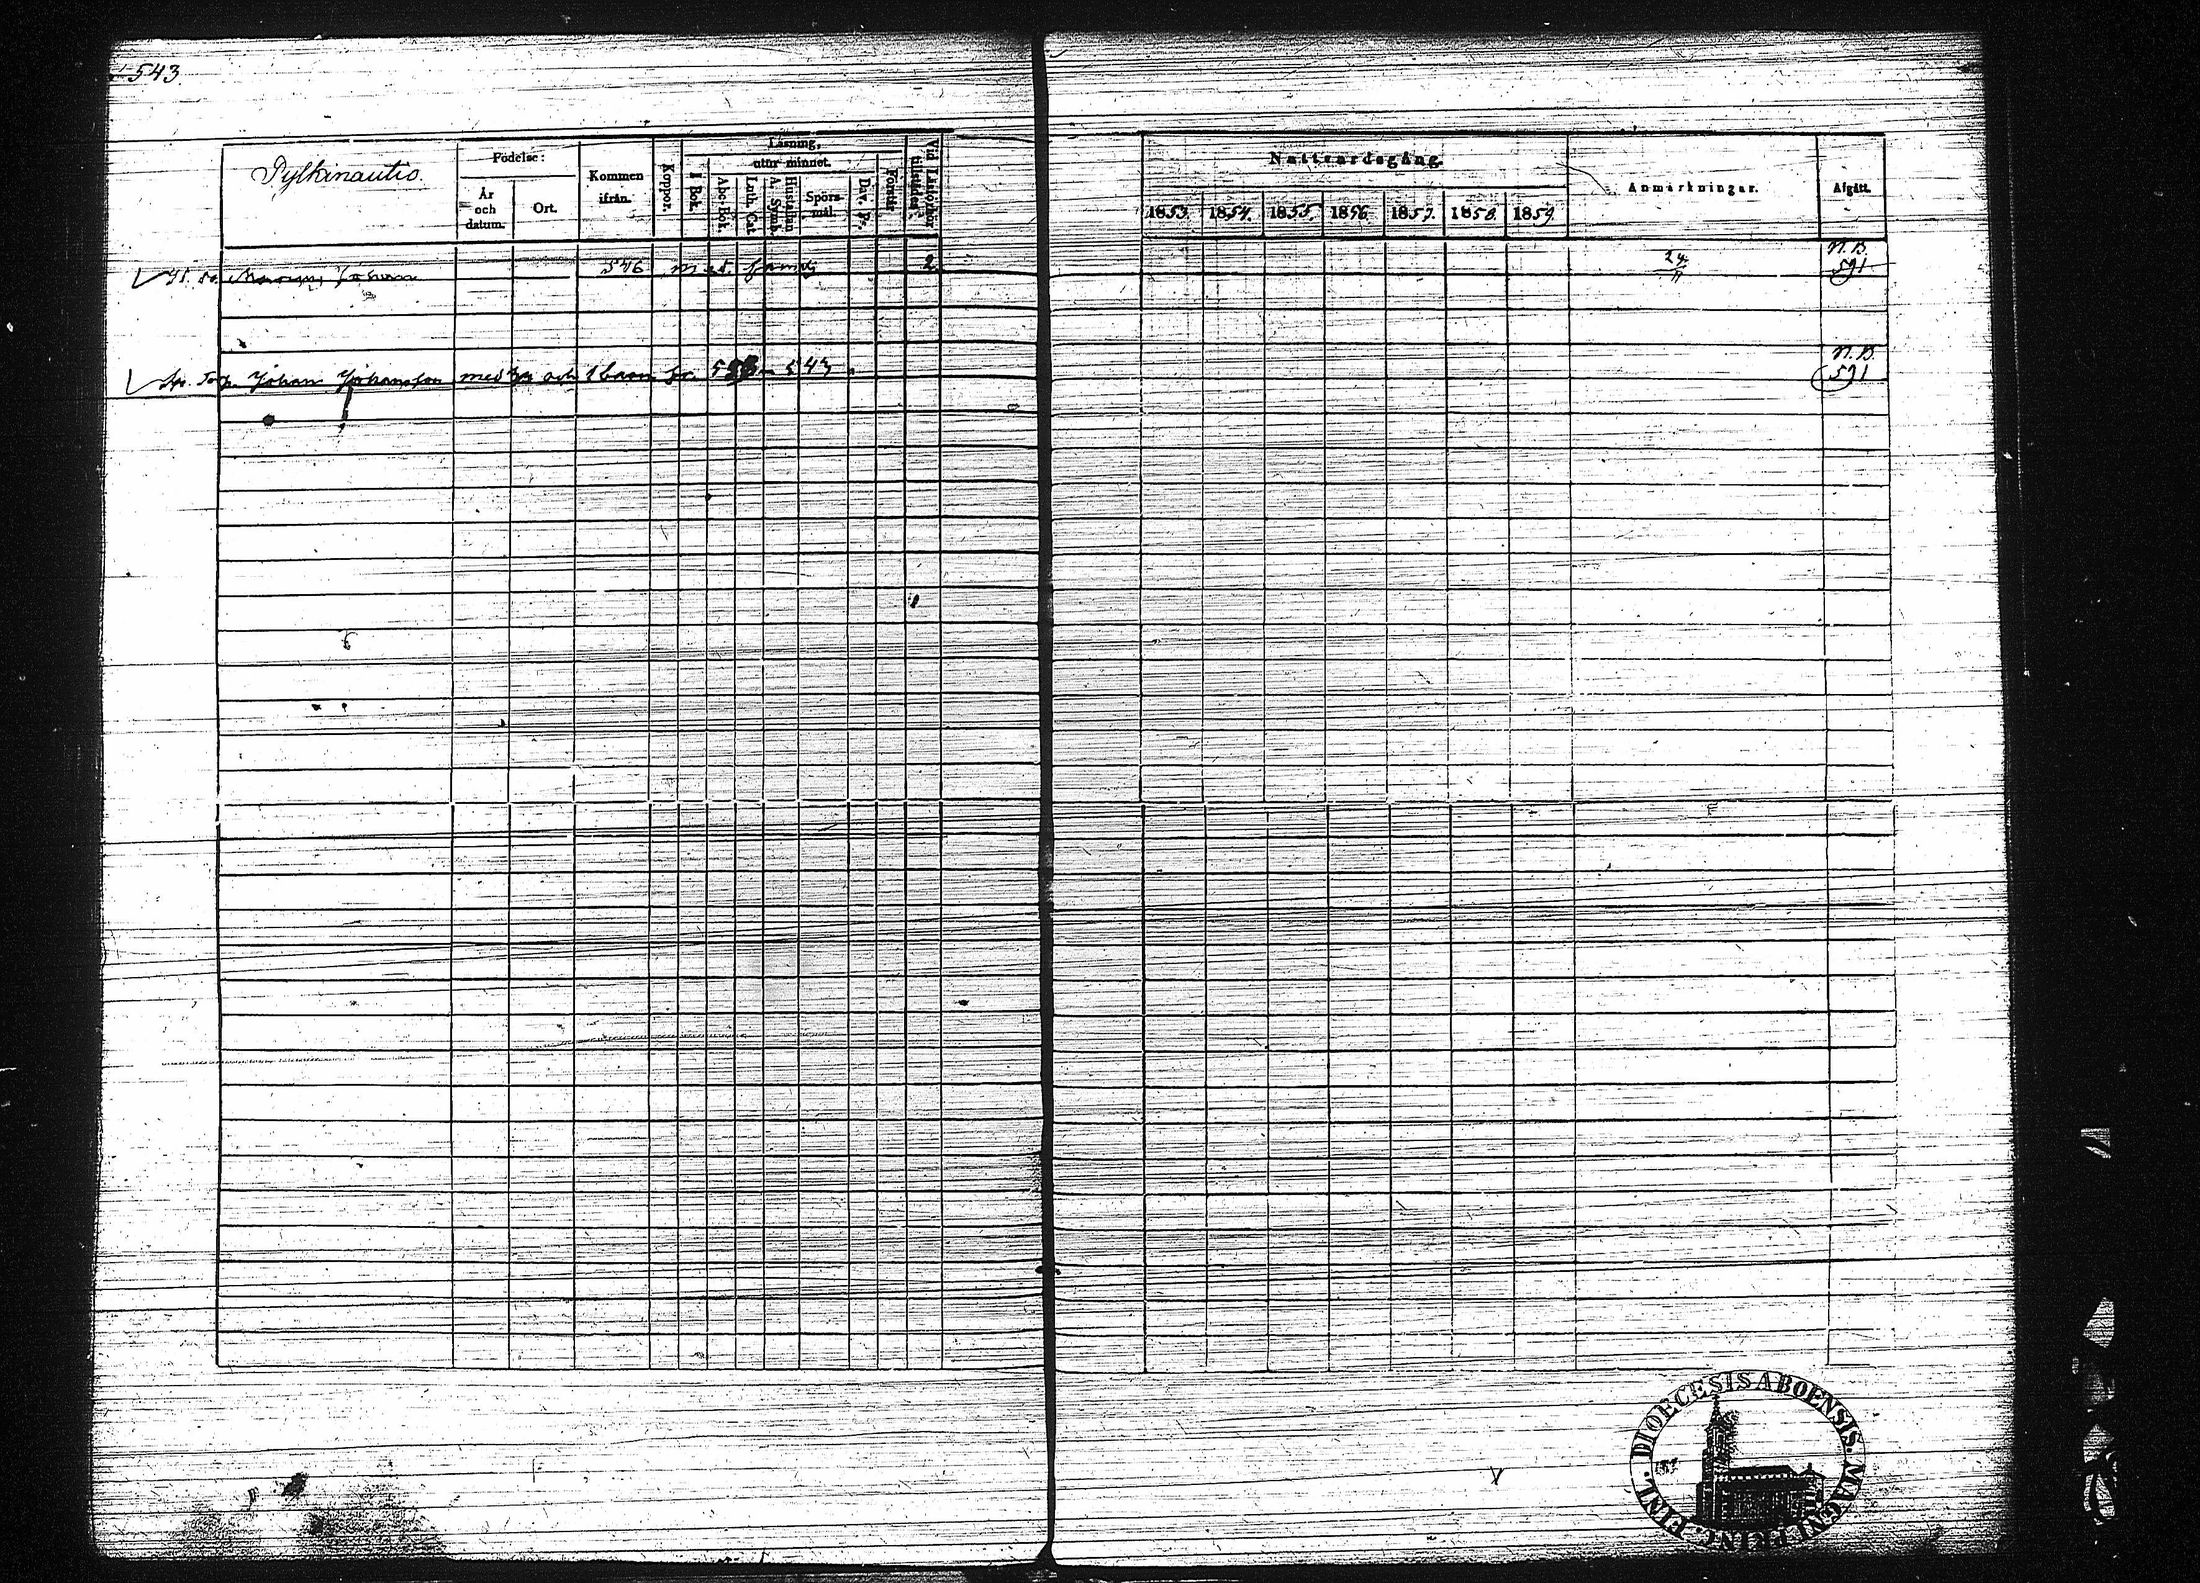 543.
Pylkinautio.
Födelse:
År och datum.
Ort.
Kommen ifrån.
Koppor.
Läsning,
utur minnet.
I Bok.
Abc-Bok.
Luth. Cat.
Hustaflan A. Symb.
Spörsmål.
Dav. Ps.
Förstår
Vid Läsförhör tillstädes.
Nattvardsgång.
1853. 1854. 1855. 1856. 1857. 1858. 1859.
Anmärkningar.
Afgått.
Johan 546 med familj 2
24/11
N.B. 591
Johan Johansson med och 1 barn fr. 543
N.B. 591
DIOECESIS ABOENSIS. MAGNI PRINC. FINL.